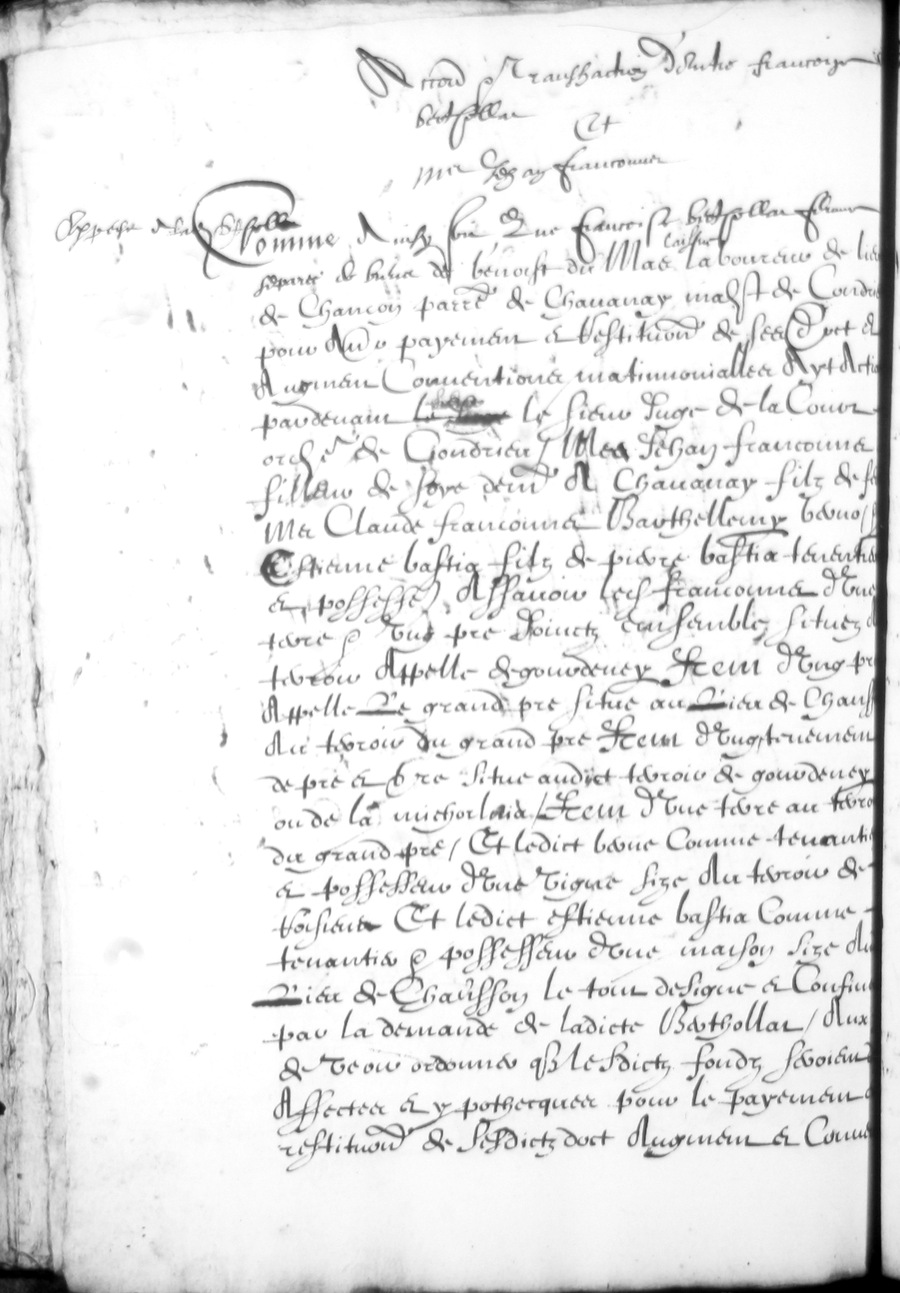 Accord et Transhaction d'Entre francoyse
berthollat
Et
Mre Jehan franconner
Expesse de lad. Bertholla
Comme Ainsy soit Que francoise berthollat femme
separee de biens de benoist du Mas laisne laboureur de lieu
de Chancon parre de Chauanay ma de Condrie
pour Avoir payement et Restituon de ses Doct et
Augment Conuentiones matrimonialles Ayt Actio
pardeuant le sieur Juge de la Cour
ord re de Condrieu / Mes Jehan francomme
filleur de soye demt A Chauanay filz de fe
Mer Claude francomme Barthellemy beruo
Estienne bastia filz de pierre bastia tenentie
et possesse Assauoir lesd francomme d'Vne
terre et Vng pre Joinctz Ensemble situez a
terroir Appelle de gourdeney Item d'Vng pre
Appelle Le grand pre situe au Lieu de Chauss
Au terroir du grand pre Item d'Vng tenement
de pre et tre situe audict terroir de gourdeney
ou de la michorlaia / Item d'Vne terre au terro
du grand pre / Et ledict berne Comme tenantie
et possesseur d'Vne Vigne size Au terroir de
Roisieux Et ledict estienne bastia Comme
tenantier et possesseur d'Vne maison size Au
Lieu de Chausson le tout designe et Confine
par la demande de ladicte Berthollat / Aux
de Veoir ordonner q lesdictz fondz seroient
Affectes et ypothecques pour le payement e
restituon de sesdictz doct Augment et Conue